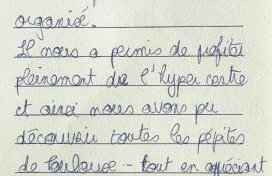 organisé.
Il nous a permis de profiter
pleinement de l'hyper centre
et ainsi nous avons pu
découvrir toutes les pépites
de Toulouse - tout en appréciant